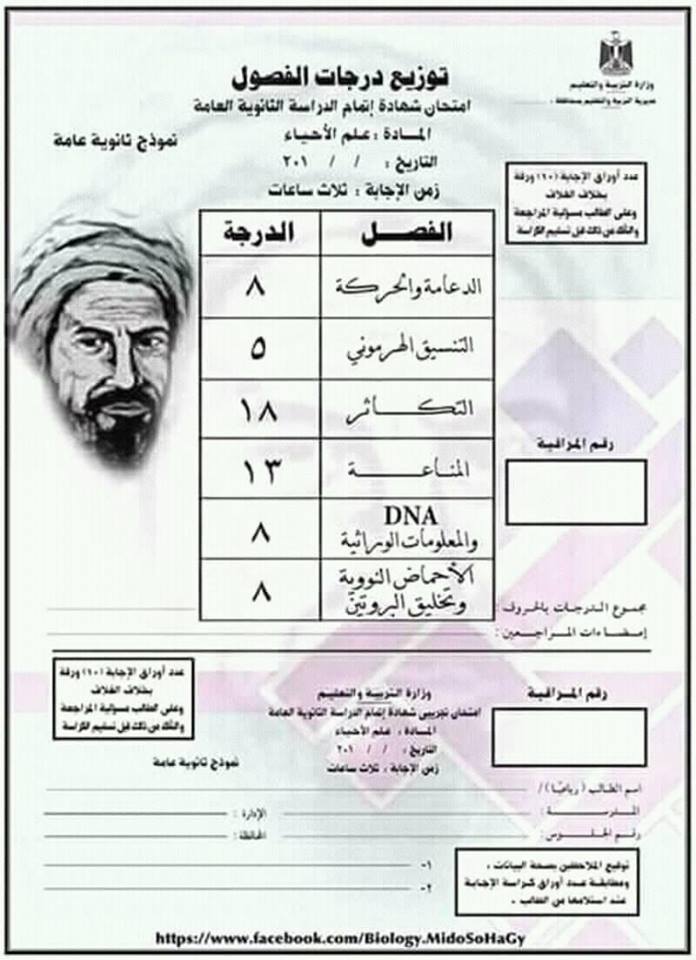 وزارة التربية والتعليم
مديرية التربية والتعليم بمحافظة :
توزيع درجات الفصول
امتحان شهادة إتمام الدراسة الثانوية العامة
المادة : علم الأحياء
التاريخ : / / ٢٠١
زمن الإجابة : ثلاث ساعات
نموذج ثانوية عامة
عدد أوراق الإجابة (١٠) ورقة
بخلاف الغلاف
وعلى الطالب مسؤلية المراجعة
والتأكد من ذلك قبل تسليم الكراسة
الفصل الدرجة
الدعامة والحركة ٨
التنسيق الهرموني ٥
التكاثر ١٨
المناعة ١٣
DNA
والمعلومات الوراثية ٨
الأحماض النووية
وتخليق البروتين ٨
رقم المراقبة
مجموع الدرجات بالحروف :
إمضاءات المراجعين :
عدد أوراق الإجابة (١٠) ورقة
بخلاف الغلاف
وعلى الطالب مسؤلية المراجعة
والتأكد من ذلك قبل تسليم الكراسة
وزارة التربية والتعليم
امتحان تجريبى شهادة إتمام الدراسة الثانوية العامة
المادة : علم الأحياء
التاريخ : / / ٢٠١
زمن الإجابة : ثلاث ساعات
نموذج ثانوية عامة
رقم المراقبة
اسم الطالب (رباعيًا) /
المدرسة : الإدارة :
رقم الجلوس : المحافظة :
توقيع الملاحظين بصحة البيانات ،
ومطابقة عدد أوراق كراسة الإجابة
عند استلامها من الطالب .
١-
٢-
https://www.facebook.com/Biology.MidoSoHaGy